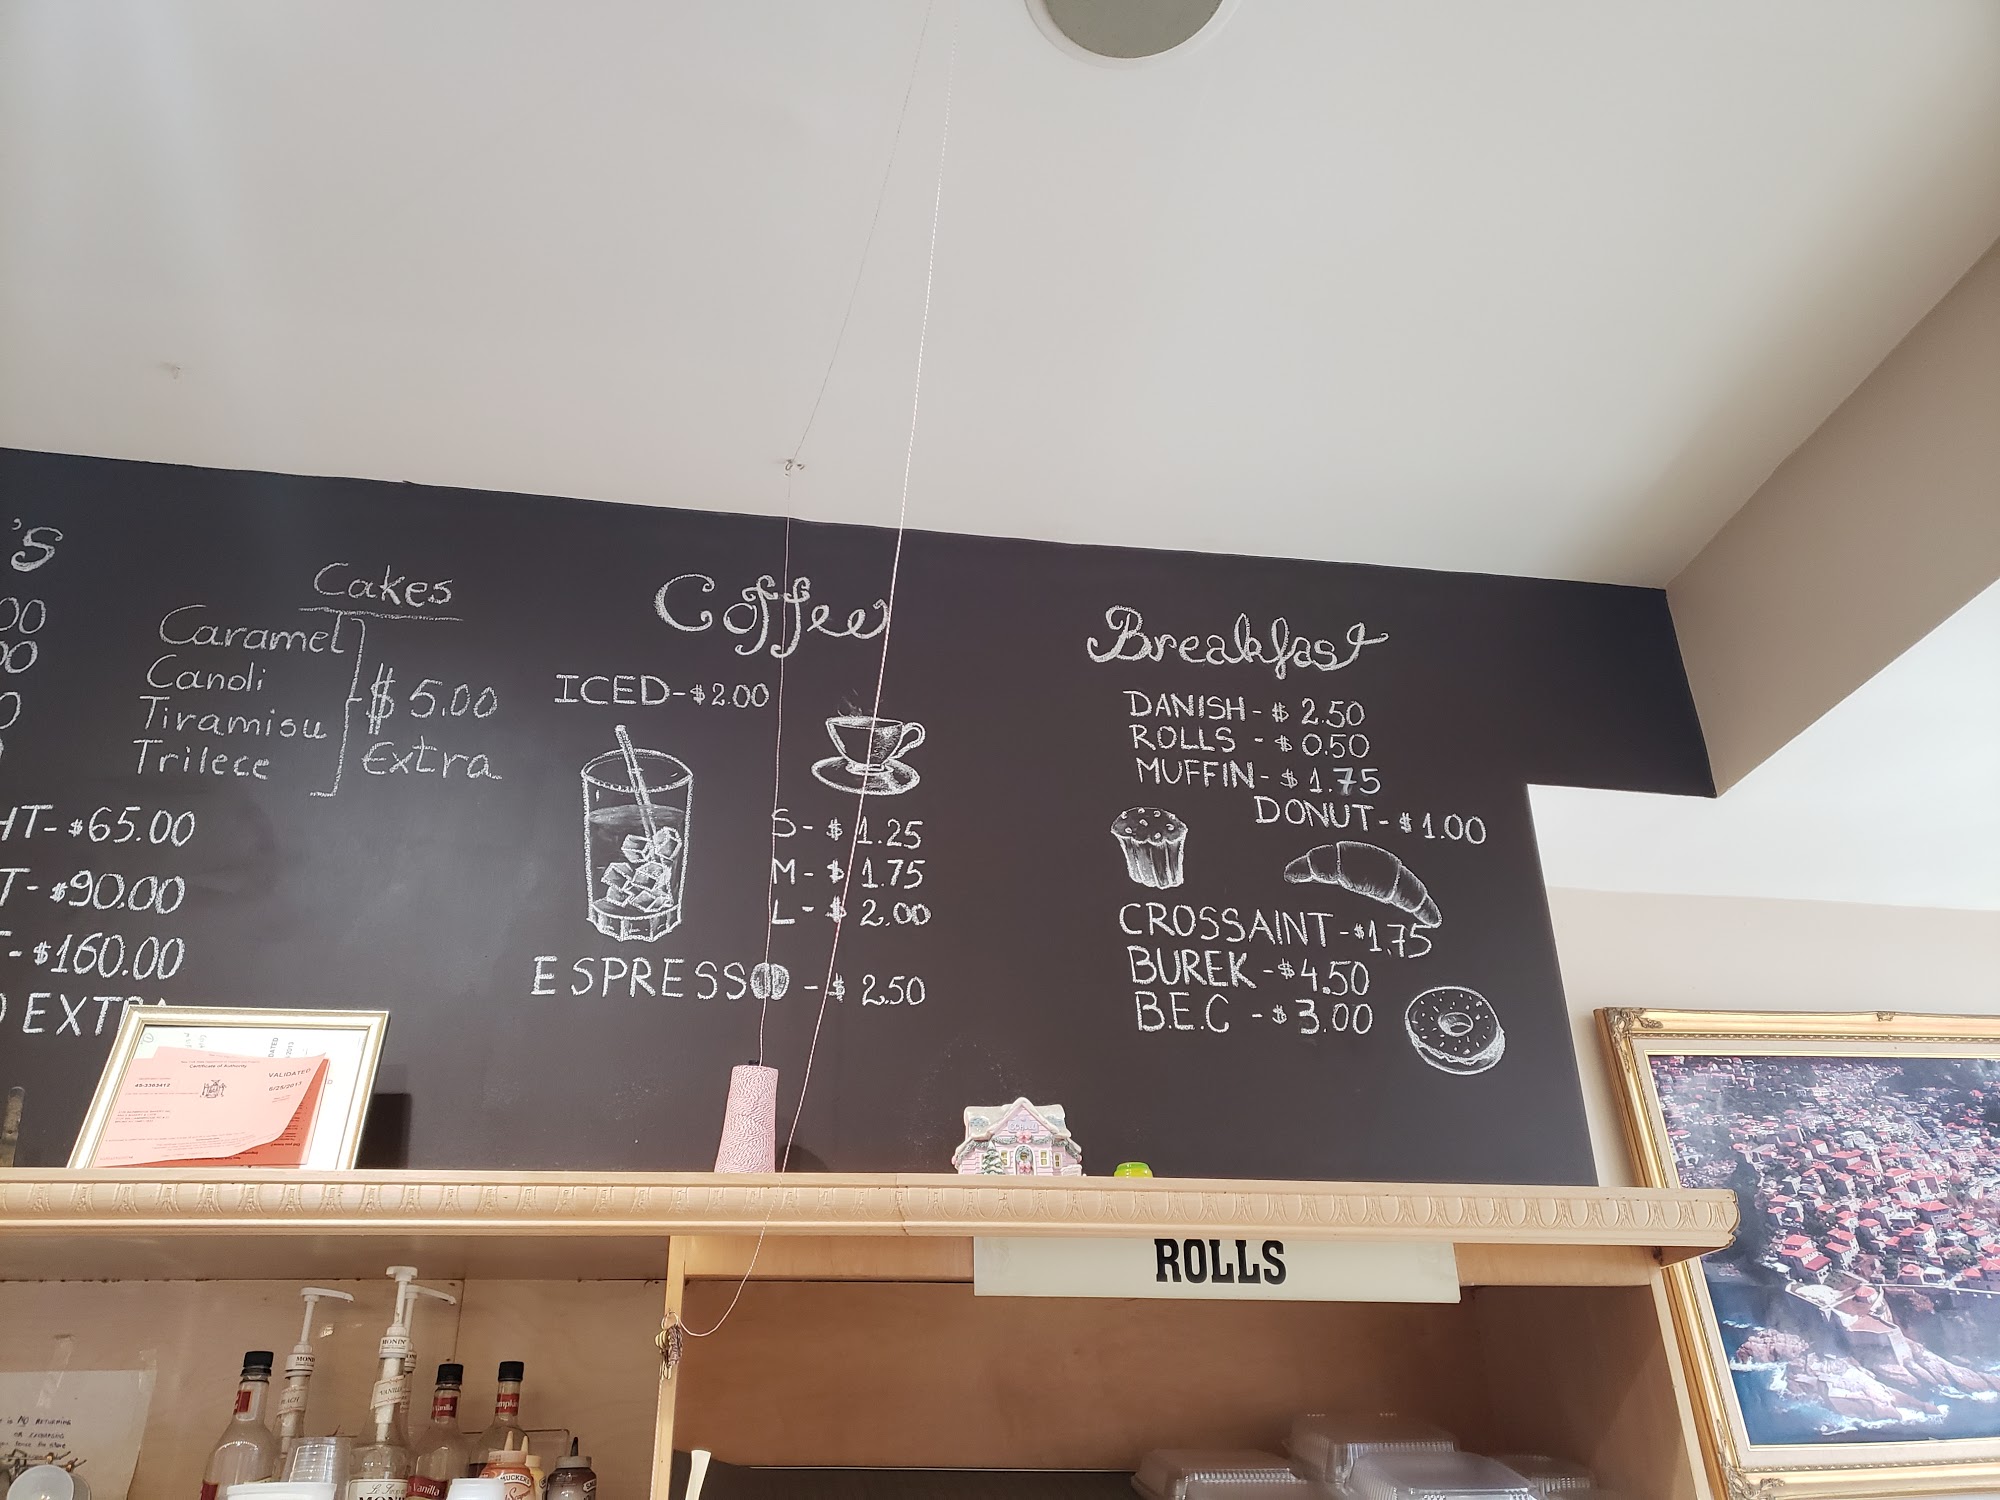 'S
00
00
0
Cakes
Caramel
Canoli
Tiramisu
Trilece
$5.00
Extra
HT-$65.00
T-$90.00
T-$160.00
EXTRA
Coffee
ICED-$2.00
S-$1.25
M-$1.75
L-$2.00
ESPRESSO-$2.50
Breakfast
DANISH-$2.50
ROLLS-$0.50
MUFFIN-$1.75
DONUT-$1.00
CROSSAINT-$1.75
BUREK-$4.50
B.E.C-$3.00
Certificate of Authority
VALIDATED
6/25/2013
ROLLS
MONIN
VANILLA
Vanilla
Vanilla
SMUCKER'S
NO RETURNING